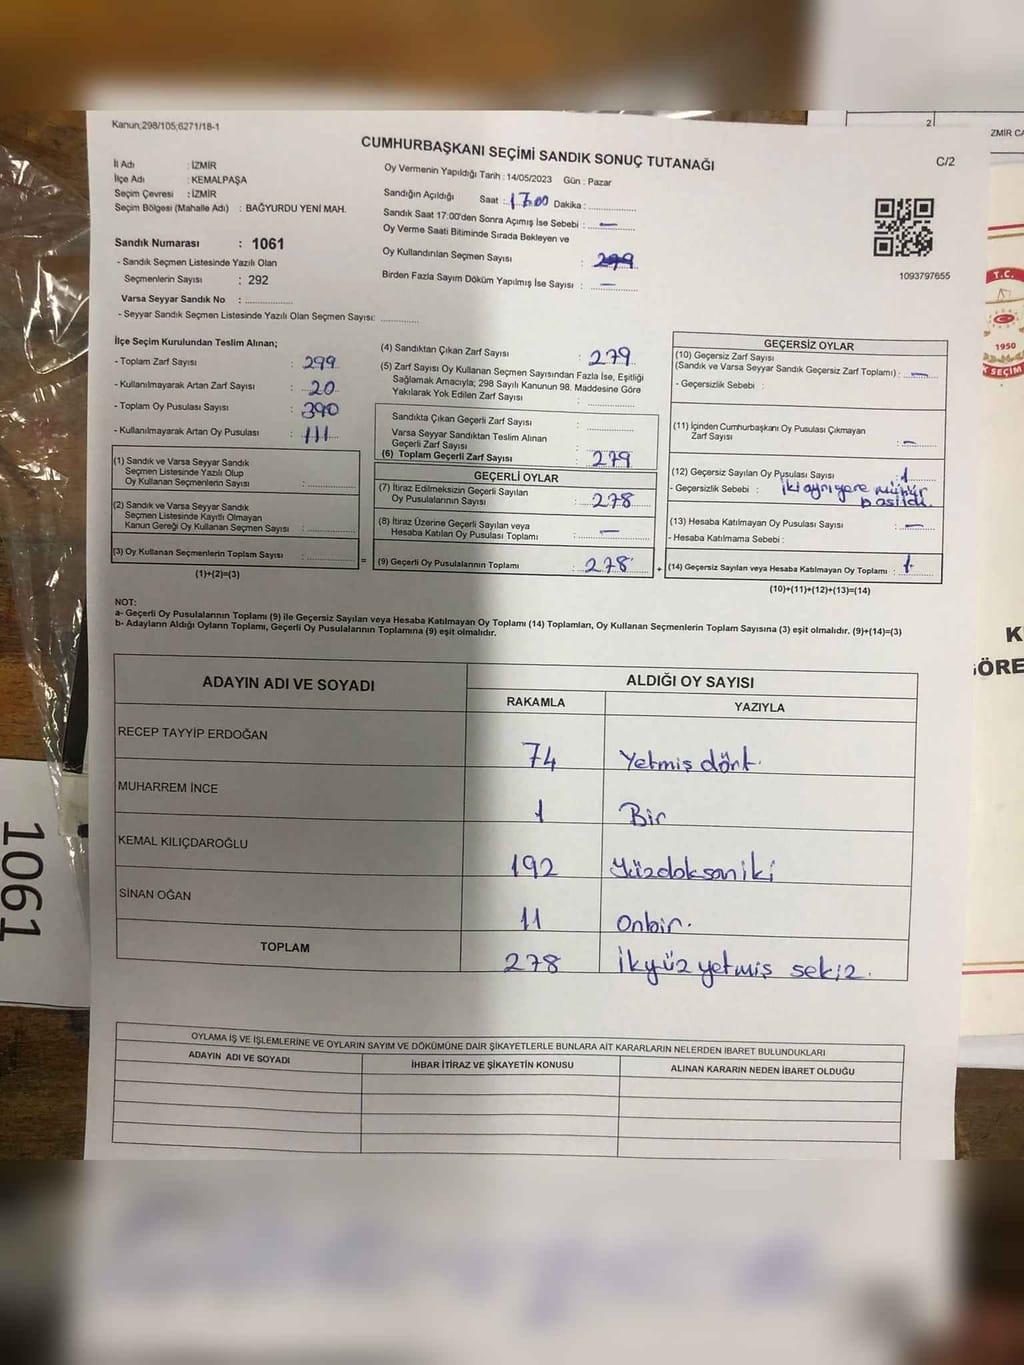 Kanun;298/105;6271/18-1
CUMHURBAŞKANI SEÇİMİ SANDIK SONUÇ TUTANAĞI
C/2
İl Adı : İZMİR
İlçe Adı : KEMALPAŞA
Seçim Çevresi : İZMİR
Seçim Bölgesi (Mahalle Adı) : BAĞYURDU YENİ MAH.
Sandık Numarası : 1061
- Sandık Seçmen Listesinde Yazılı Olan
Seçmenlerin Sayısı : 292
Varsa Seyyar Sandık No :
- Seyyar Sandık Seçmen Listesinde Yazılı Olan Seçmen Sayısı:
Oy Vermenin Yapıldığı Tarih : 14/05/2023 Gün : Pazar
Sandığın Açıldığı Saat : 17.00 Dakika :
Sandık Saat 17:00'den Sonra Açımış İse Sebebi : —
Oy Verme Saati Bitiminde Sırada Bekleyen ve
Oy Kullandırılan Seçmen Sayısı :
Birden Fazla Sayım Döküm Yapılmış İse Sayısı : —
1093797655
İlçe Seçim Kurulundan Teslim Alınan;
- Toplam Zarf Sayısı : 299
- Kullanılmayarak Artan Zarf Sayısı : 20
- Toplam Oy Pusulası Sayısı : 390
- Kullanılmayarak Artan Oy Pusulası : 111
(1) Sandık ve Varsa Seyyar Sandık
Seçmen Listesinde Yazılı Olup
Oy Kullanan Seçmenlerin Sayısı :
(2) Sandık ve Varsa Seyyar Sandık
Seçmen Listesinde Kayıtlı Olmayan
Kanun Gereği Oy Kullanan Seçmen Sayısı :
(3) Oy Kullanan Seçmenlerin Toplam Sayısı :
(1)+(2)=(3)
(4) Sandıktan Çıkan Zarf Sayısı : 279
(5) Zarf Sayısı Oy Kullanan Seçmen Sayısından Fazla İse, Eşitliği
Sağlamak Amacıyla; 298 Sayılı Kanunun 98. Maddesine Göre
Yakılarak Yok Edilen Zarf Sayısı :
Sandıkta Çıkan Geçerli Zarf Sayısı :
Varsa Seyyar Sandıktan Teslim Alınan
Geçerli Zarf Sayısı :
(6) Toplam Geçerli Zarf Sayısı : 279
=
GEÇERLİ OYLAR
(7) İtiraz Edilmeksizin Geçerli Sayılan
Oy Pusulalarının Sayısı : 278
(8) İtiraz Üzerine Geçerli Sayılan veya
Hesaba Katılan Oy Pusulası Toplamı : —
(9) Geçerli Oy Pusulalarının Toplamı : 278
+
GEÇERSİZ OYLAR
(10) Geçersiz Zarf Sayısı
(Sandık ve Varsa Seyyar Sandık Geçersiz Zarf Toplamı) : —
- Geçersizlik Sebebi :
(11) İçinden Cumhurbaşkanı Oy Pusulası Çıkmayan
Zarf Sayısı : —
(12) Geçersiz Sayılan Oy Pusulası Sayısı : 1
- Geçersizlik Sebebi : iki ayrı yere mühür
basıldı.
(13) Hesaba Katılmayan Oy Pusulası Sayısı : —
- Hesaba Katılmama Sebebi :
(14) Geçersiz Sayılan veya Hesaba Katılmayan Oy Toplamı : 1
(10)+(11)+(12)+(13)=(14)
NOT:
a- Geçerli Oy Pusulalarının Toplamı (9) ile Geçersiz Sayılan veya Hesaba Katılmayan Oy Toplamı (14) Toplamları, Oy Kullanan Seçmenlerin Toplam Sayısına (3) eşit olmalıdır. (9)+(14)=(3)
b- Adayların Aldığı Oyların Toplamı, Geçerli Oy Pusulalarının Toplamına (9) eşit olmalıdır.
ADAYIN ADI VE SOYADI
ALDIĞI OY SAYISI
RAKAMLA YAZIYLA
RECEP TAYYİP ERDOĞAN 74 Yetmiş dört.
MUHARREM İNCE 1 Bir
KEMAL KILIÇDAROĞLU 192 Yüzdoksaniki
SİNAN OĞAN 11 Onbir.
TOPLAM 278 İkyüz yetmiş sekiz.
OYLAMA İŞ VE İŞLEMLERİNE VE OYLARIN SAYIM VE DÖKÜMÜNE DAİR ŞİKAYETLERLE BUNLARA AİT KARARLARIN NELERDEN İBARET BULUNDUKLARI
ADAYIN ADI VE SOYADI İHBAR İTİRAZ VE ŞİKAYETİN KONUSU ALINAN KARARIN NEDEN İBARET OLDUĞU
1061
2
T.C.
1950